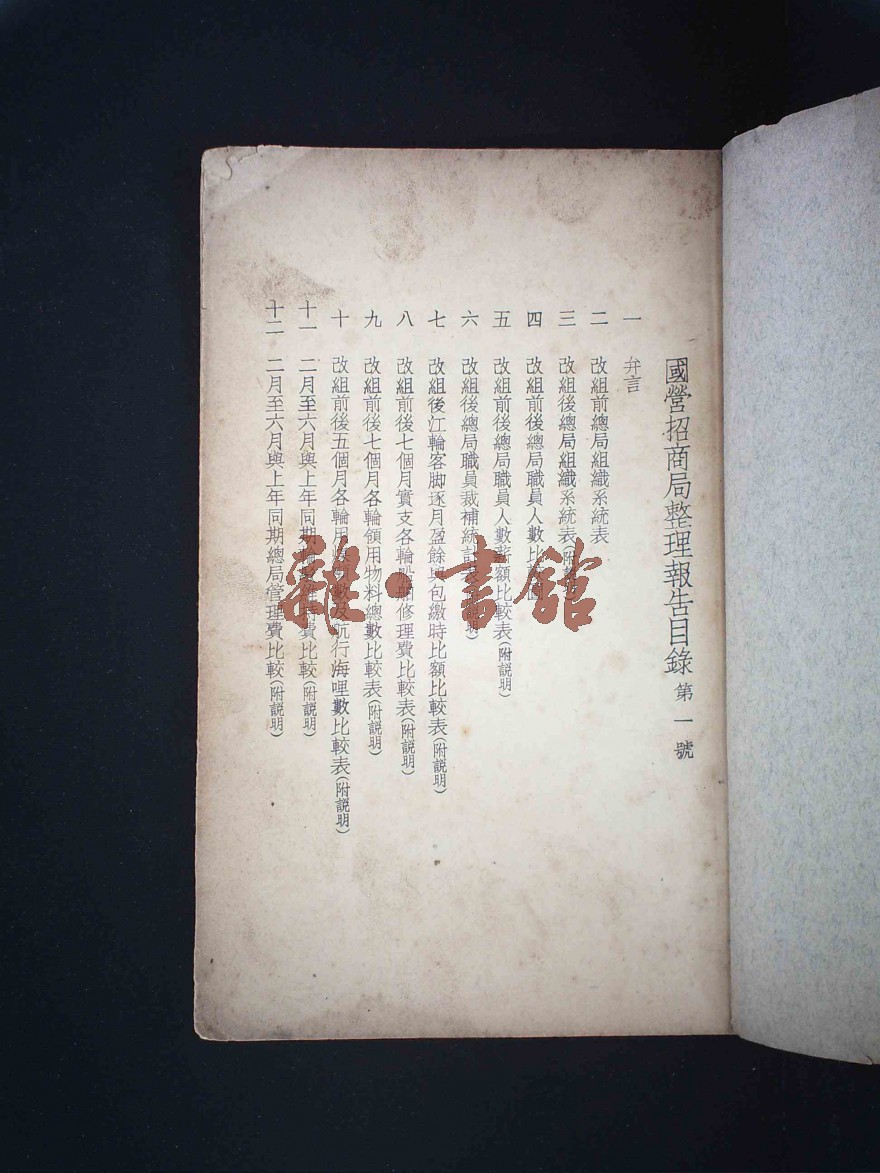 國營招商局整理報告目錄 第一號
一 弁言
二 改組前總局組織系統表
三 改組後總局組織系統表(附
四 改組前後總局職員人數比
五 改組前後總局職員人數薪額比較表(附說明)
六 改組後總局職員裁補統計 明)
七 改組後江輪客脚逐月盈餘與包繳時比額比較表(附說明)
八 改組前後七個月實支各輪船舶修理費比較表(附說明)
九 改組前後七個月各輪領用物料總數比較表(附說明)
十 改組前後五個月各輪用 數及航行海哩數比較表(附說明)
十一 二月至六月與上年同期 費比較(附說明)
十二 二月至六月與上年同期總局管理費比較(附說明)
雜·書館